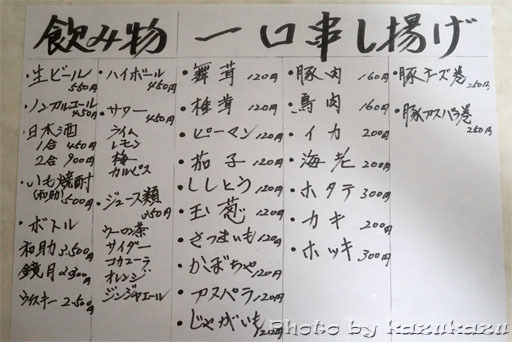 飲み物
・生ビール
550円
・ノンアルコール
450円
・日本酒
1合 450円
2合 900円
・いも焼酎
(和助) 500円
・ボトル
和助 2,500円
鏡月 2,300円
ウイスキー 2,500円
・ハイボール
450円
・サワー
450円
ライム
レモン
梅
カルピス
・ジュース類
350円
ウーロン茶
サイダー
コカコーラ
オレンジ
ジンジャエール
一口串し揚げ
・舞茸 120円
・椎茸 120円
・ピーマン 120円
・茄子 120円
・ししとう 120円
・玉葱 120円
・さつまいも 120円
・かぼちゃ 120円
・アスパラ 120円
・じゃがいも 120円
・豚肉 160円
・鳥肉 160円
・イカ 200円
・海老 200円
・ホタテ 300円
・カキ 200円
・ホッキ 300円
・豚チーズ巻
250円
・豚アスパラ巻
250円
Photo by kazukazu